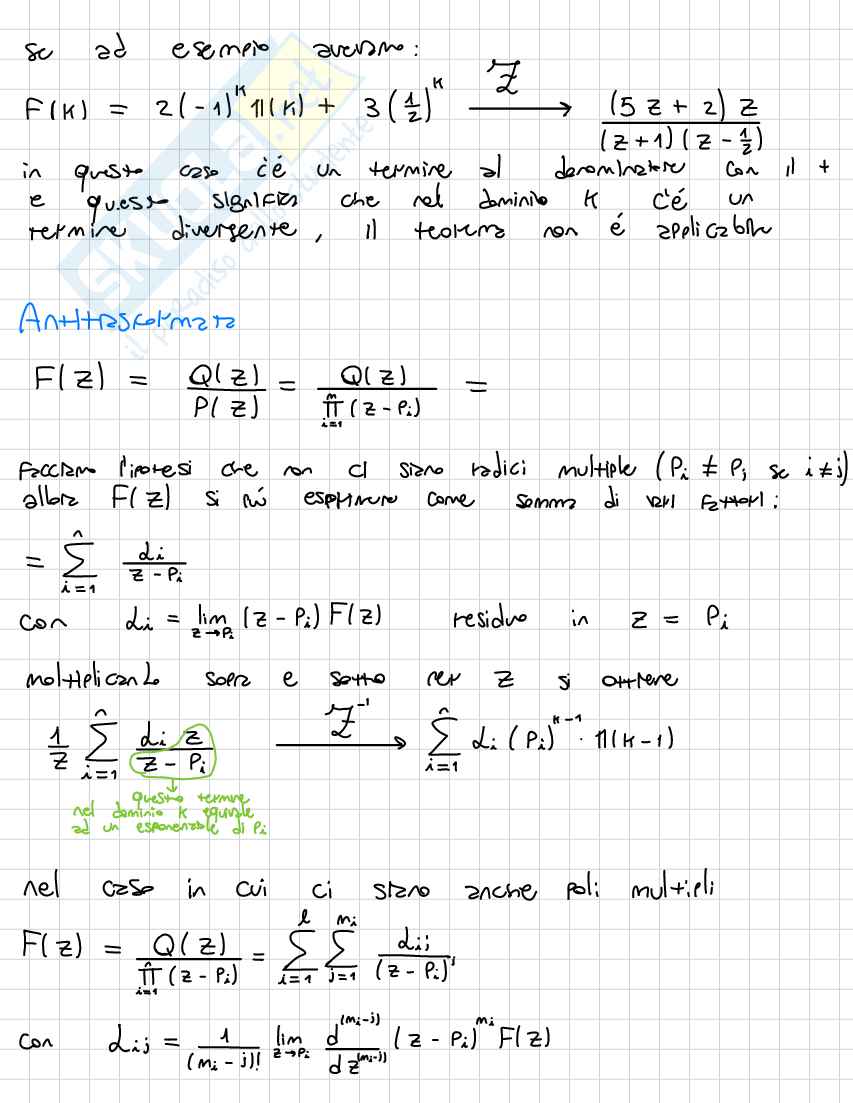 se ad esempio avessimo:
F(K) = 2(-1)^K 1(K) + 3(1/2)^K —Z→ (5z + 2) z / (z+1)(z - 1/2)
in questo caso c'é un termine al denominatore con il +
e questo significa che nel dominio K c'é un
termine divergente, il teorema non é applicabile
Antitrasformata
F(z) = Q(z)/P(z) = Q(z) / ∏_{i=1}^{n} (z - Pi) =
facciamo l'ipotesi che non ci siano radici multiple (Pi ≠ Pj se i≠j)
allora F(z) si può esprimere come somma di vari fattori:
= ∑_{i=1}^{n} αi / (z - Pi)
con αi = lim_{z→Pi} (z - Pi) F(z) residuo in z = Pi
moltiplicando sopra e sotto per z si ottiene
1/z ∑_{i=1}^{n} αi z / (z - Pi) —Z^-1→ ∑_{i=1}^{n} αi (Pi)^{K-1} · 1(K-1)
questo termine
nel dominio K equivale
ad un esponenziale di Pi
nel caso in cui ci siano anche poli multipli
F(z) = Q(z) / ∏_{i=1}^{n} (z - Pi) = ∑_{i=1}^{l} ∑_{j=1}^{mi} αij / (z - Pi)^j
con αij = 1/(mi - j)! lim_{z→Pi} d^{(mi-j)}/dz^{(mi-j)} (z - Pi)^{mi} F(z)
SKUOLA.net
il paradiso dello studente